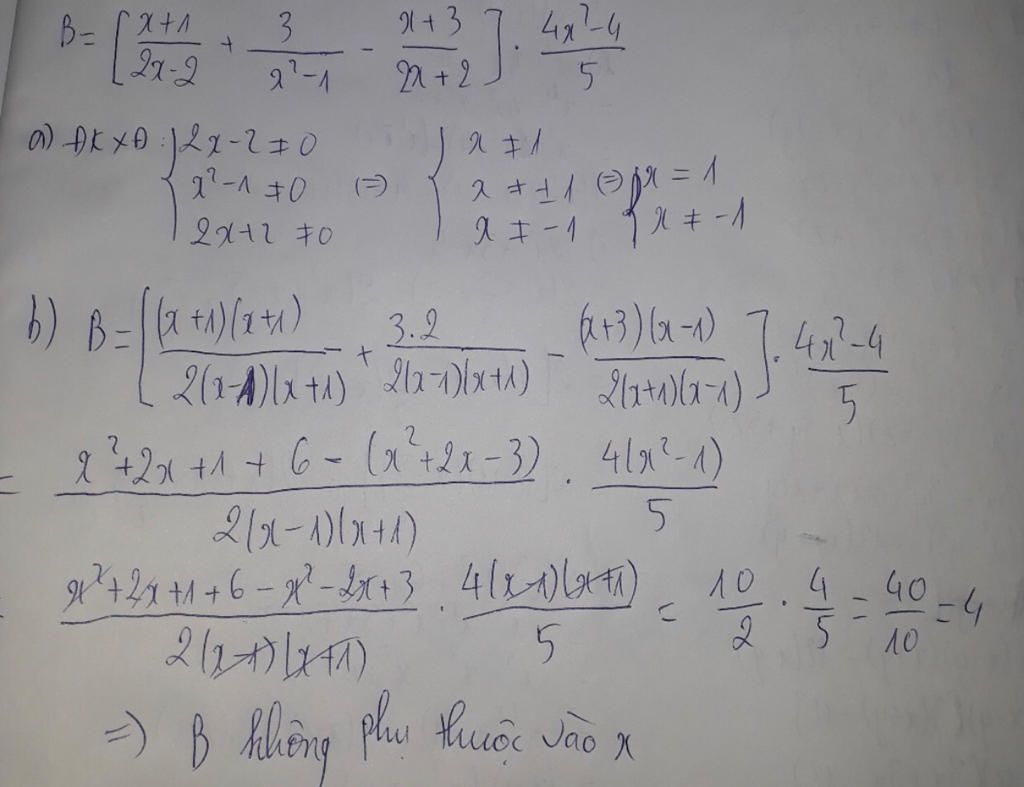 B = [ (x+1)/(2x-2) + 3/(x²-1) - (x+3)/(2x+2) ] . (4x²-4)/5
a) ĐKXĐ: { 2x-2 ≠ 0 ; x²-1 ≠ 0 ; 2x+2 ≠ 0 (=) { x ≠ 1 ; x ≠ ±1 ; x ≠ -1 (=) { x = 1 ; x ≠ -1
b) B = [ (x+1)(x+1)/2(x-1)(x+1) + 3.2/2(x-1)(x+1) - (x+3)(x-1)/2(x+1)(x-1) ] . (4x²-4)/5
= (x²+2x+1+6-(x²+2x-3))/2(x-1)(x+1) . 4(x²-1)/5
= (x²+2x+1+6-x²-2x+3)/2(x-1)(x+1) . 4(x-1)(x+1)/5 = 10/2 . 4/5 = 40/10 = 4
=) B không phụ thuộc vào x